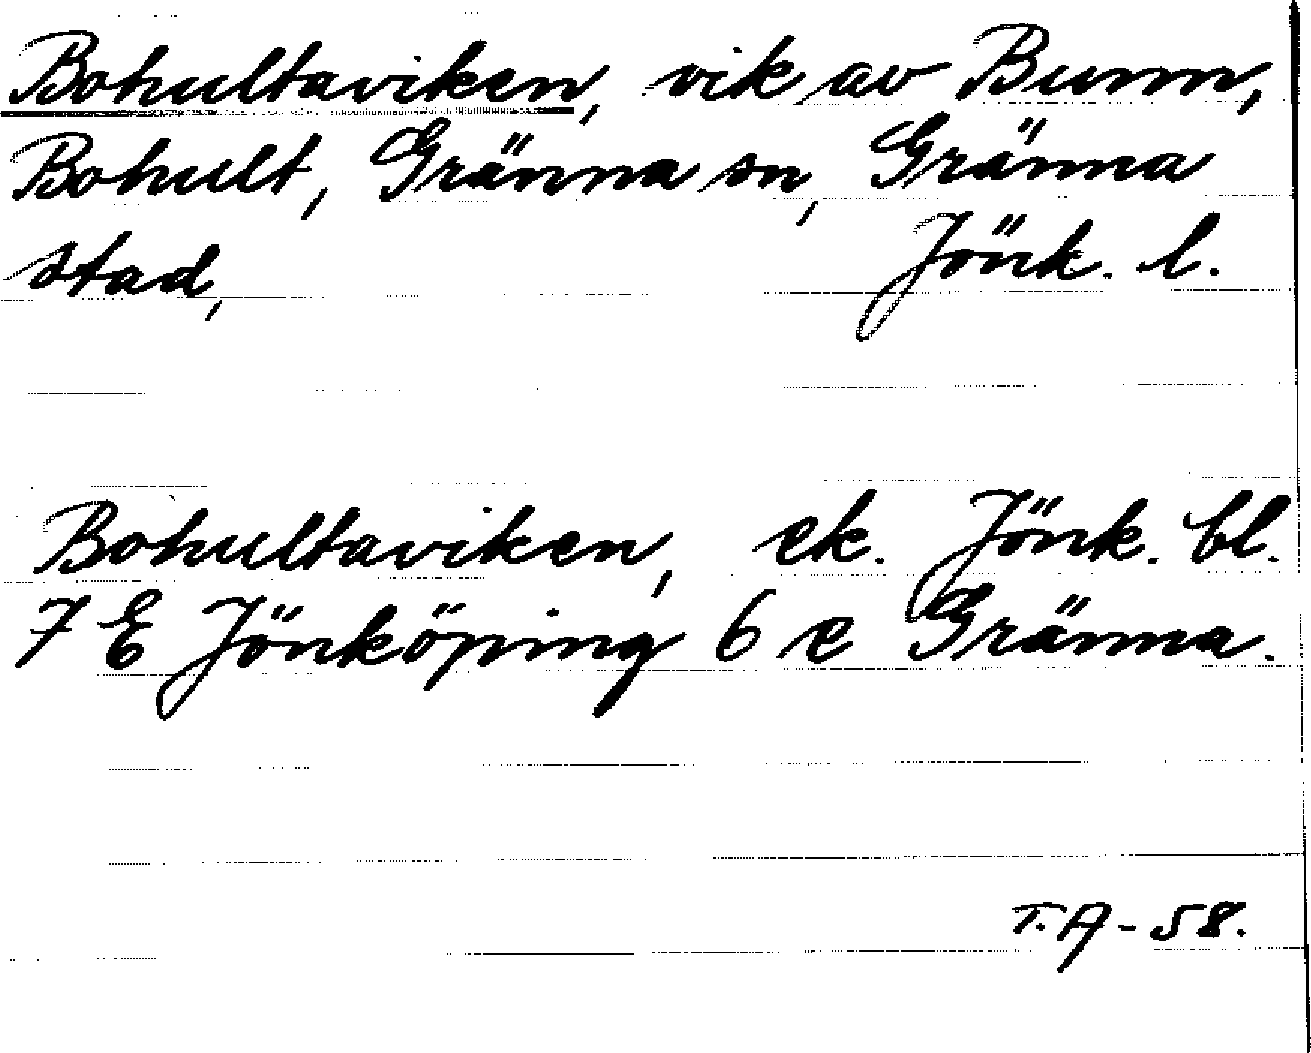 Bohultaviken, vik av Bunn,
Bohult, Gränna sn, Gränna
stad, Jönk. l.
Bohultaviken, ek. Jönk. bl.
7 E Jönköping 6 e Gränna.
T.A - 58.